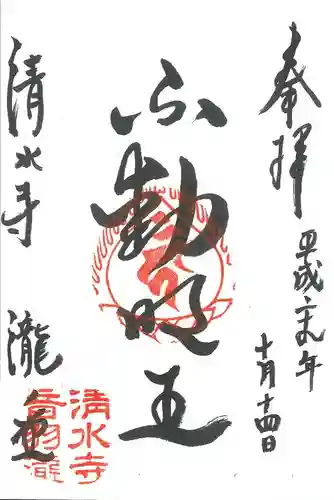 奉拝
平成二九年
十月十四日
不動明王
清水寺
瀧堂
清水寺
音羽瀧